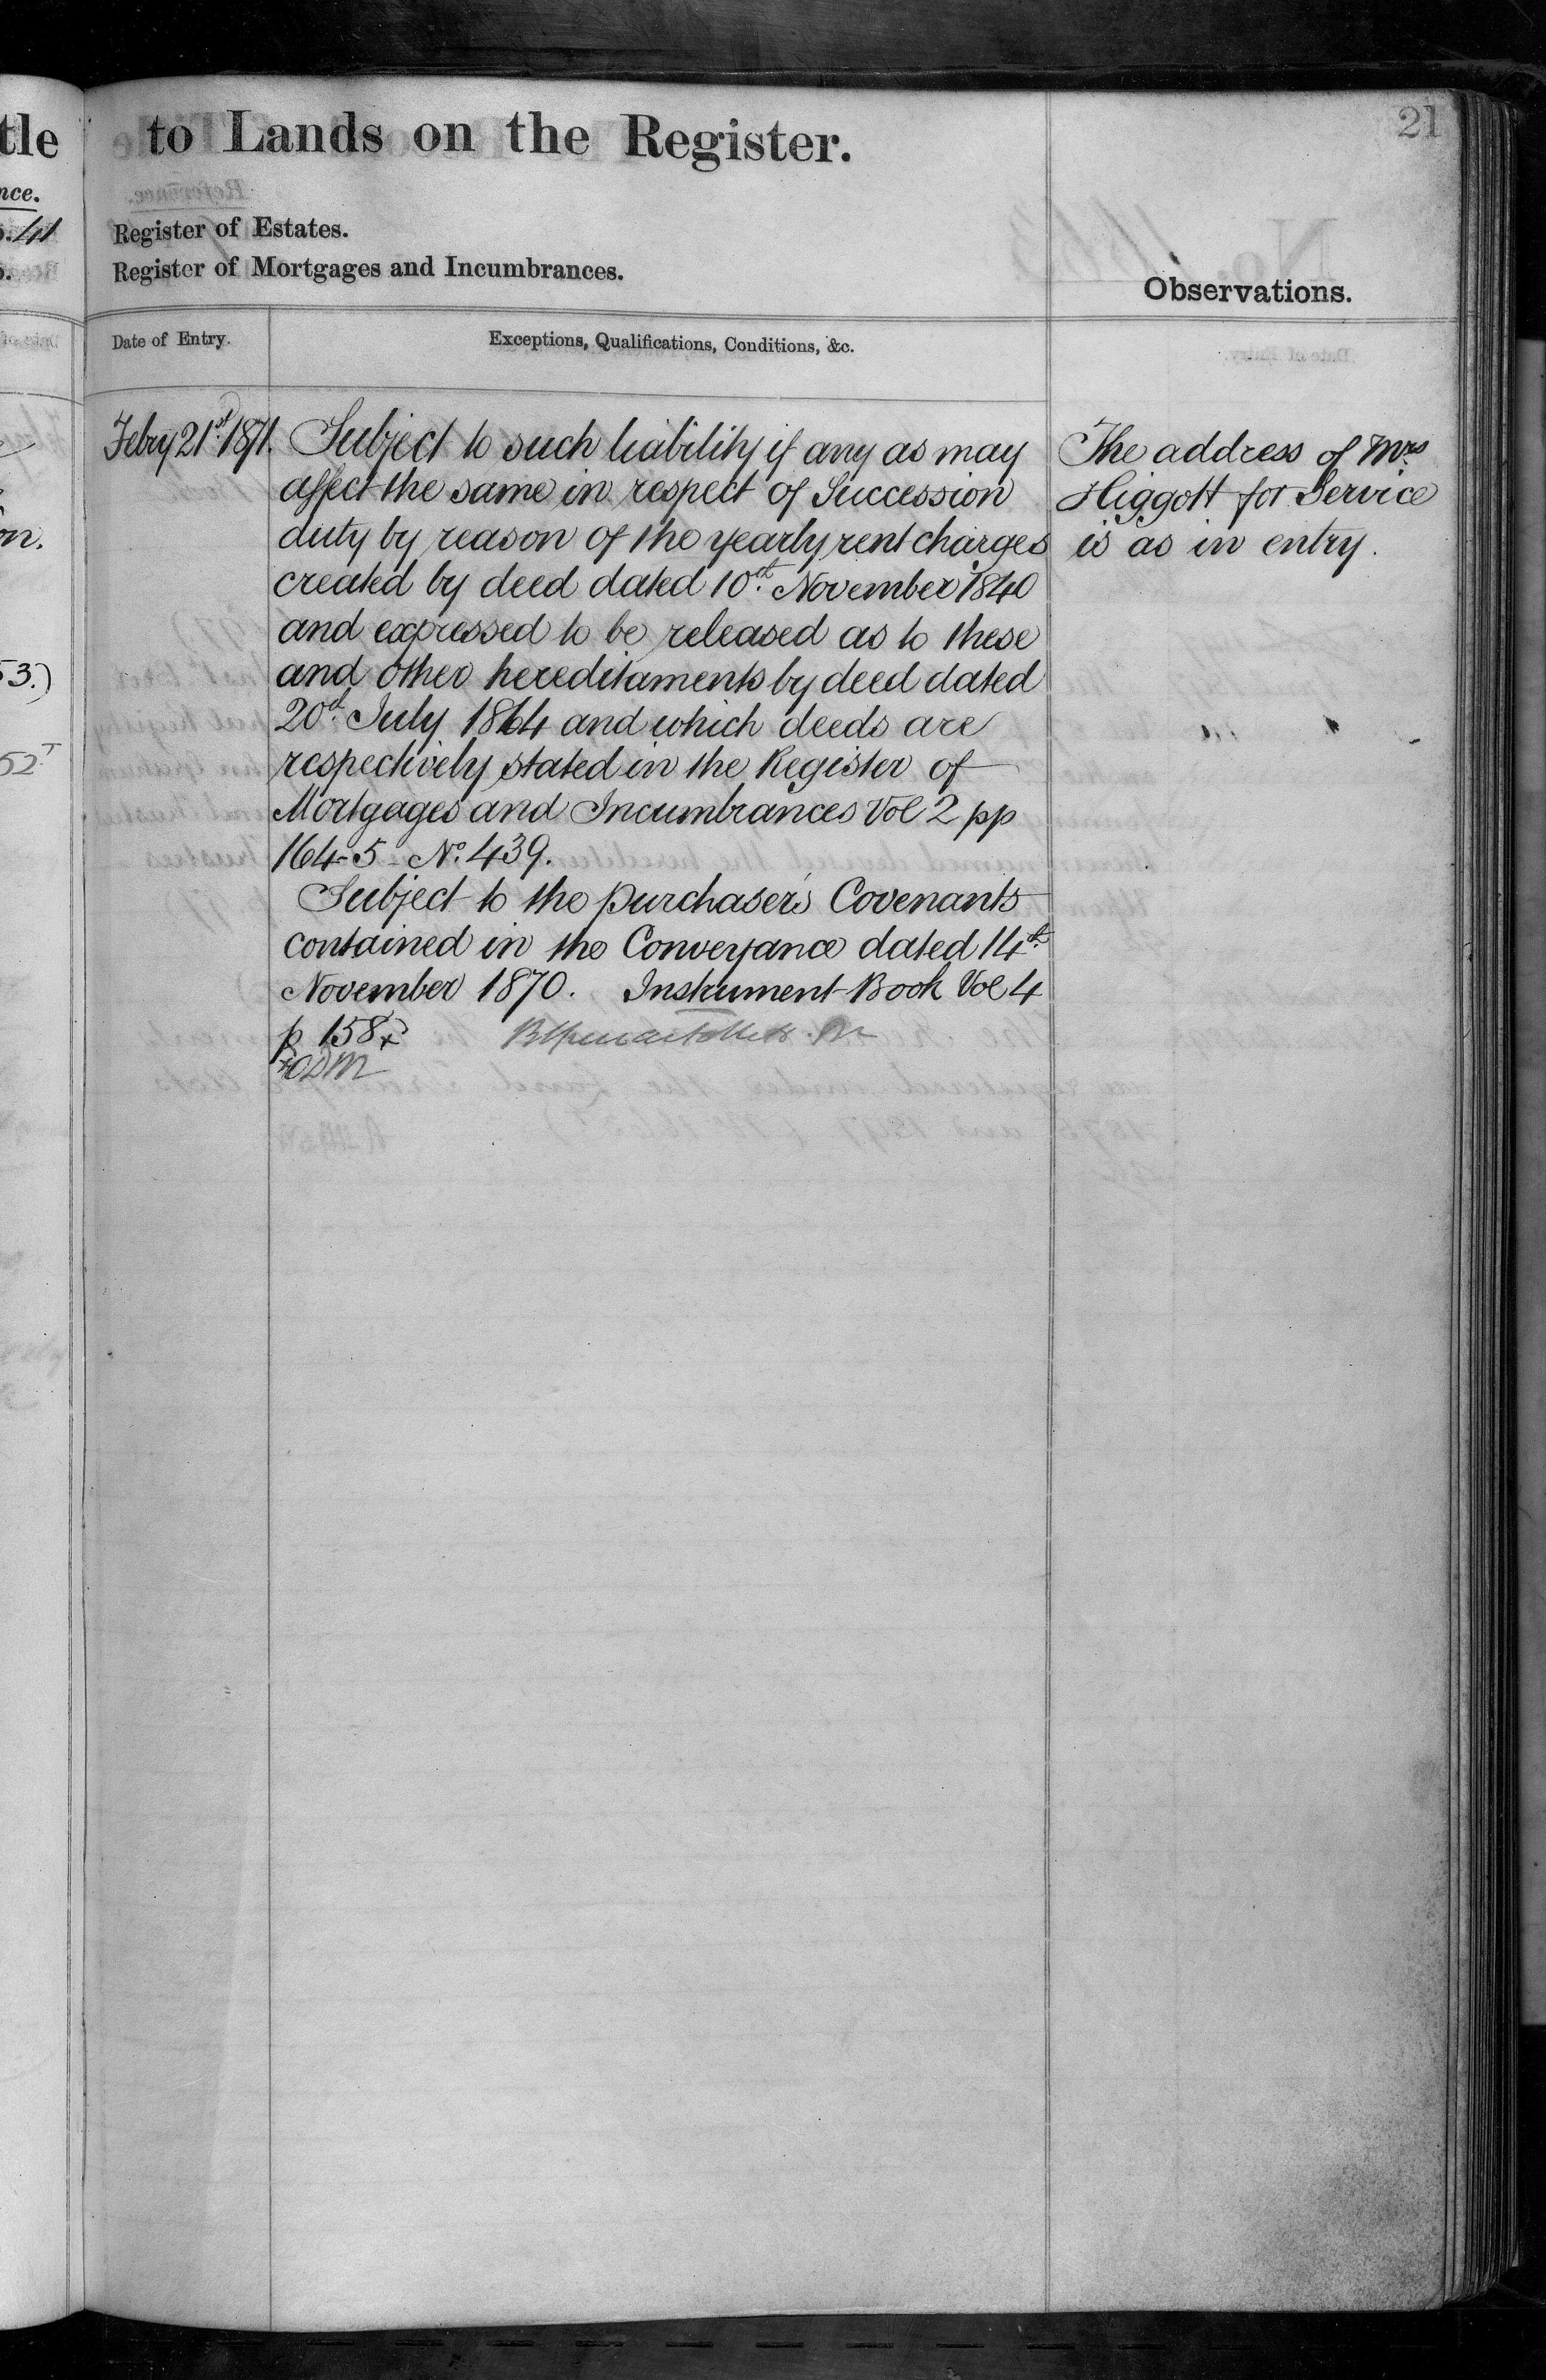 21
tle to Lands on the Register.
nce.
.41 Register of Estates.
Register of Mortgages and Incumbrances.
Observations.
Date of Entry.
Exceptions, Qualifications, Conditions, &c.
Febry 21st 1871.
Subject to such liability if any as may
affect the same in respect of Succession
duty by reason of the yearly rent charges
created by deed dated 10th November 1840
and expressed to be released as to these
and other hereditaments by deed dated
20th July 1864 and which deeds are
respectively stated in the Register of
Mortgages and Incumbrances Vol 2 pp
164-5 - No. 439.
Subject to the purchaser's Covenants
contained in the Conveyance dated 14th
November 1870. Instrument Book Vol 4
p 158
The address of Mrs
Higgott for Service
is as in entry.
on.
53.)
52